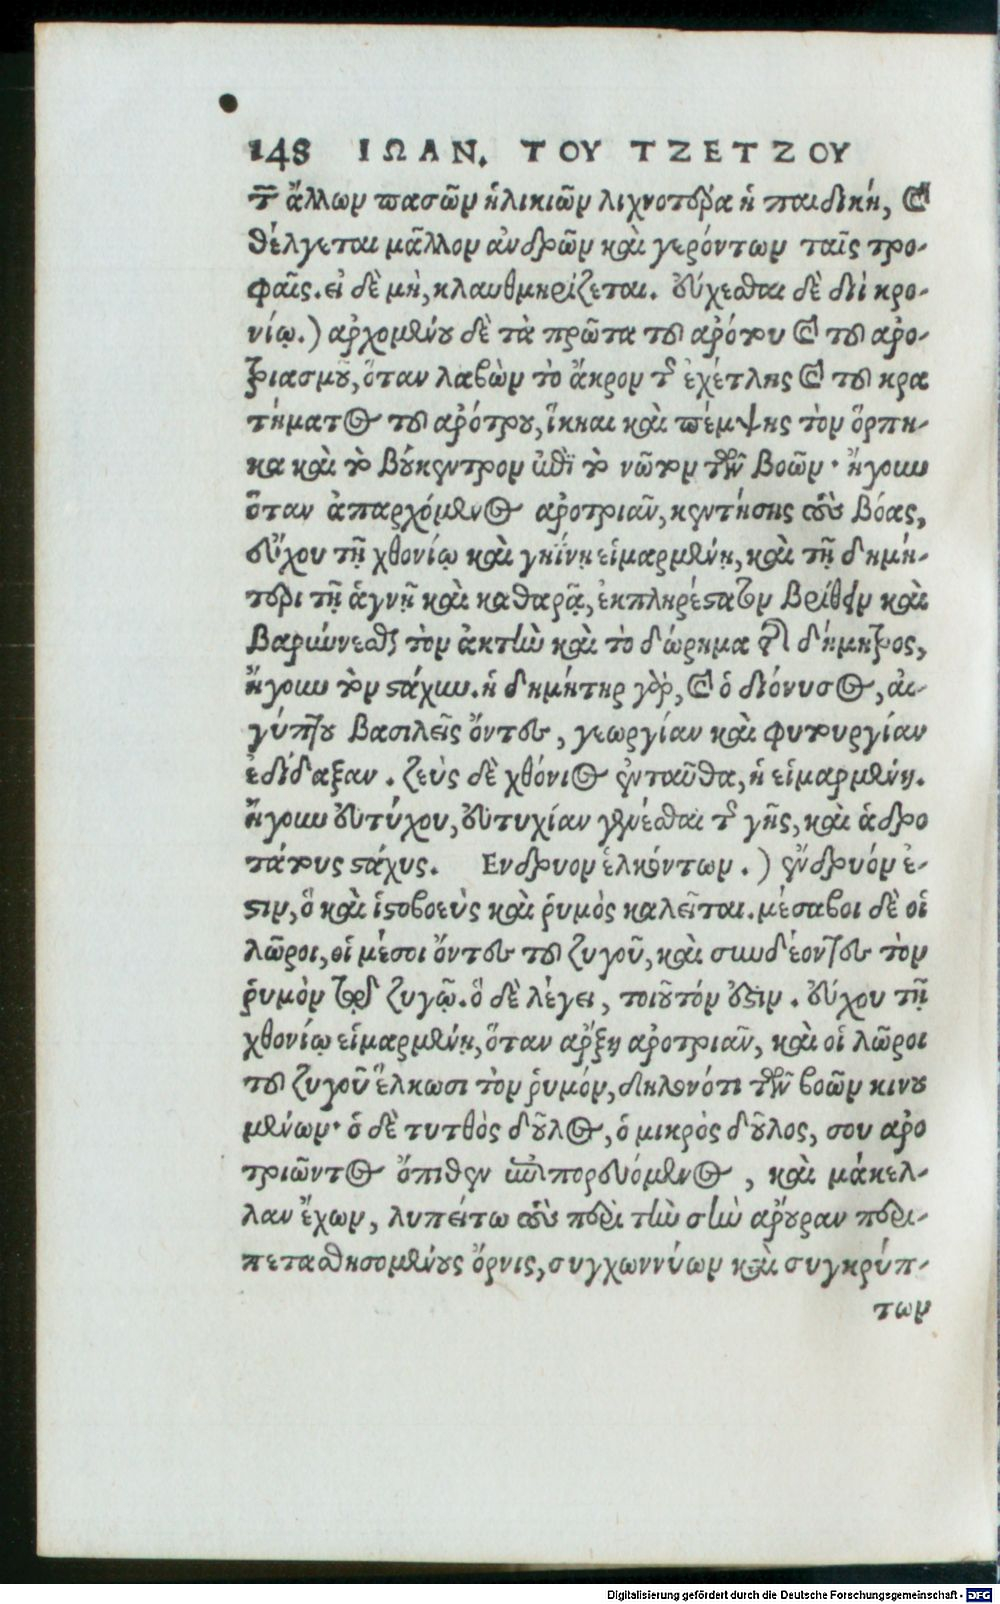 148 ΙΩΑΝ. ΤΟΥ ΤΖΕΤΖΟΥ
τ̃ ἄλλων πασῶν ἡλικιῶν λιχνοτέρα ἡ παιδικὴ, καὶ
θέλγεται μᾶλλον ἀνδρῶν καὶ γερόντων ταῖς τρο-
φαῖς. εἰ δὲ μὴ, κλαυθμηρίζεται. εὔχεσθαι δὲ διὶ χθο-
νίῳ.) ἀρχομένου δὲ τὰ πρῶτα τοῦ ἀρότου καὶ τοῦ ἀρο-
τριασμοῦ, ὅταν λαβὼν τὸ ἄκρον τῆς ἐχέτλης καὶ τοῦ κρα
τήματος τοῦ ἀρότρου, ἵκηαι καὶ πέμψης τὸν ὅρπη-
κα καὶ τὸ βούκεντρον ἐπὶ τὸ νῶτον τῶν βοῶν· ἤγουν
ὅταν ἀπαρχόμενος ἀροτριᾶν, κεντήσης τοὺς βόας,
εὔχου τῇ χθονίῳ καὶ γηΐνῃ εἱμαρμένῃ, καὶ τῇ δημή-
τερι τῇ ἁγνῇ καὶ καθαρᾷ, ἐκπληρέστατον βρίθειν καὶ
βαρύνεσθαι τὸν ἀκτὴν καὶ τὸ δώρημα τῆς δήμητρος,
ἤγουν τὸν στάχυν. ἡ δημήτηρ γὰρ, καὶ ὁ διόνυσος, αἰ-
γύπτου βασιλεῖς ὄντες, γεωργίαν καὶ φυτουργίαν
ἐδίδαξαν. ζεὺς δὲ χθόνιος ἐνταῦθα, ἡ εἱμαρμένη.
ἤγουν εὐτύχου, εὐτυχίαν γενέσθαι τῆς γῆς, καὶ ἁδρο
τάτους στάχυς. Ενδρυον ἑλκόντων.) ἔνδρυόν ἐ-
στιν, ὃ καὶ ἱστοβοεὺς καὶ ῥυμὸς καλεῖται. μέσαβοι δὲ οἱ
λῶροι, οἱ μέσοι ὄντες τοῦ ζυγοῦ, καὶ συνδέοντες τὸν
ῥυμὸν τῷ ζυγῷ. ὃ δὲ λέγει, τοιοῦτόν ἐστιν. εὔχου τῇ
χθονίῳ εἱμαρμένῃ, ὅταν ἄρξῃ ἀροτριᾶν, καὶ οἱ λῶροι
τοῦ ζυγοῦ ἕλκωσι τὸν ῥυμόν, δηλονότι τῶν βοῶν κινου
μένων· ὁ δὲ τυτθὸς δοῦλος, ὁ μικρὸς δοῦλος, σου ἀρο
τριῶντος ὄπιθεν ἐμπορευόμενος, καὶ μάκελ-
λαν ἔχων, λυπείτω τοὺς περὶ τὴν σὴν ἄρουραν περι-
πετασθησομένους ὄρνις, συγχωννύων καὶ συγκρύπ-
των
Digitalisierung gefördert durch die Deutsche Forschungsgemeinschaft - DFG